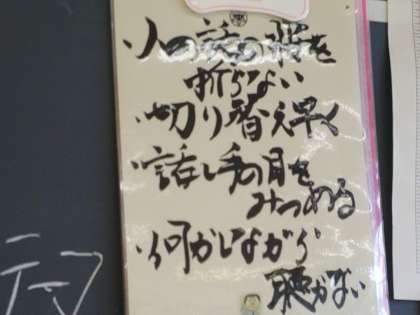 ・人の話の腰を
折らない
・切り替え早く
・話し手の目を
みつめる
・何かしながら
聴かない
テマ